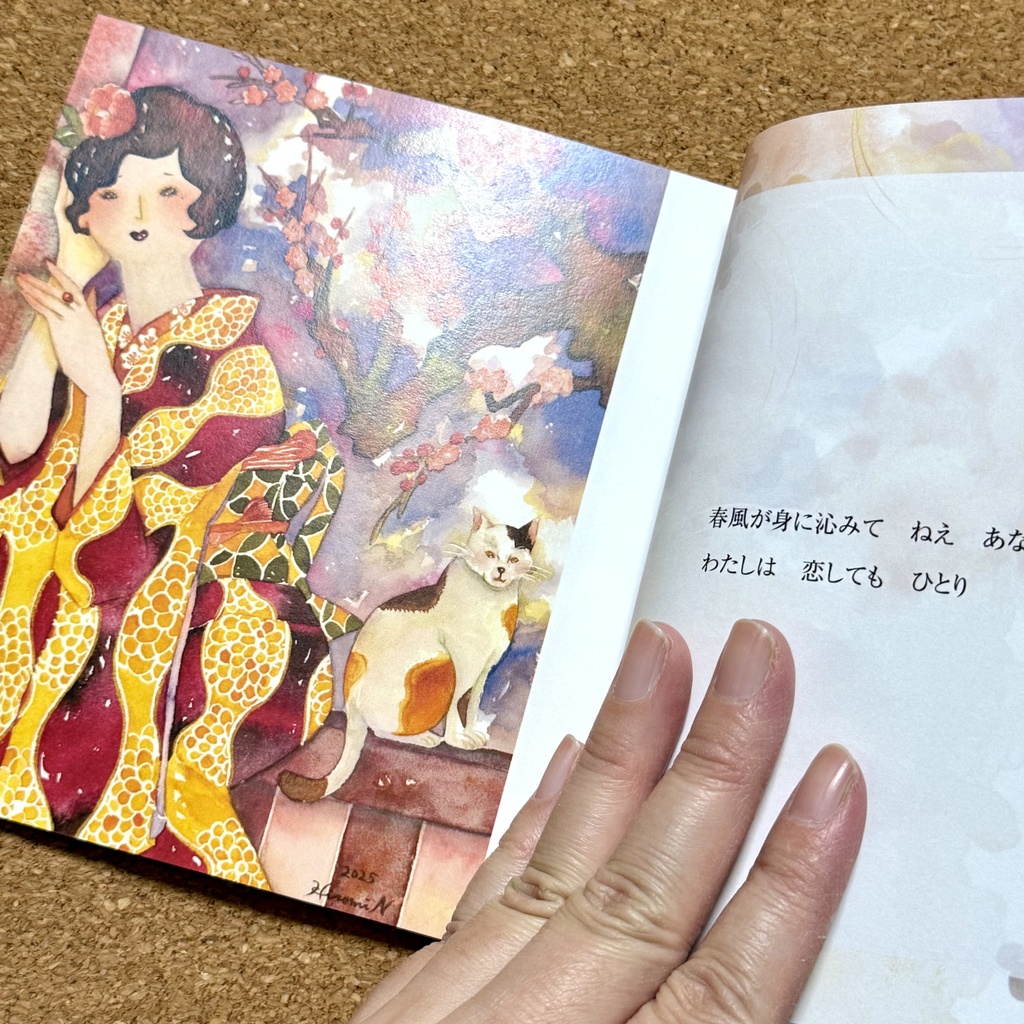 2025
春風が身に沁みて　ねえ　あな
わたしは　恋しても　ひとり